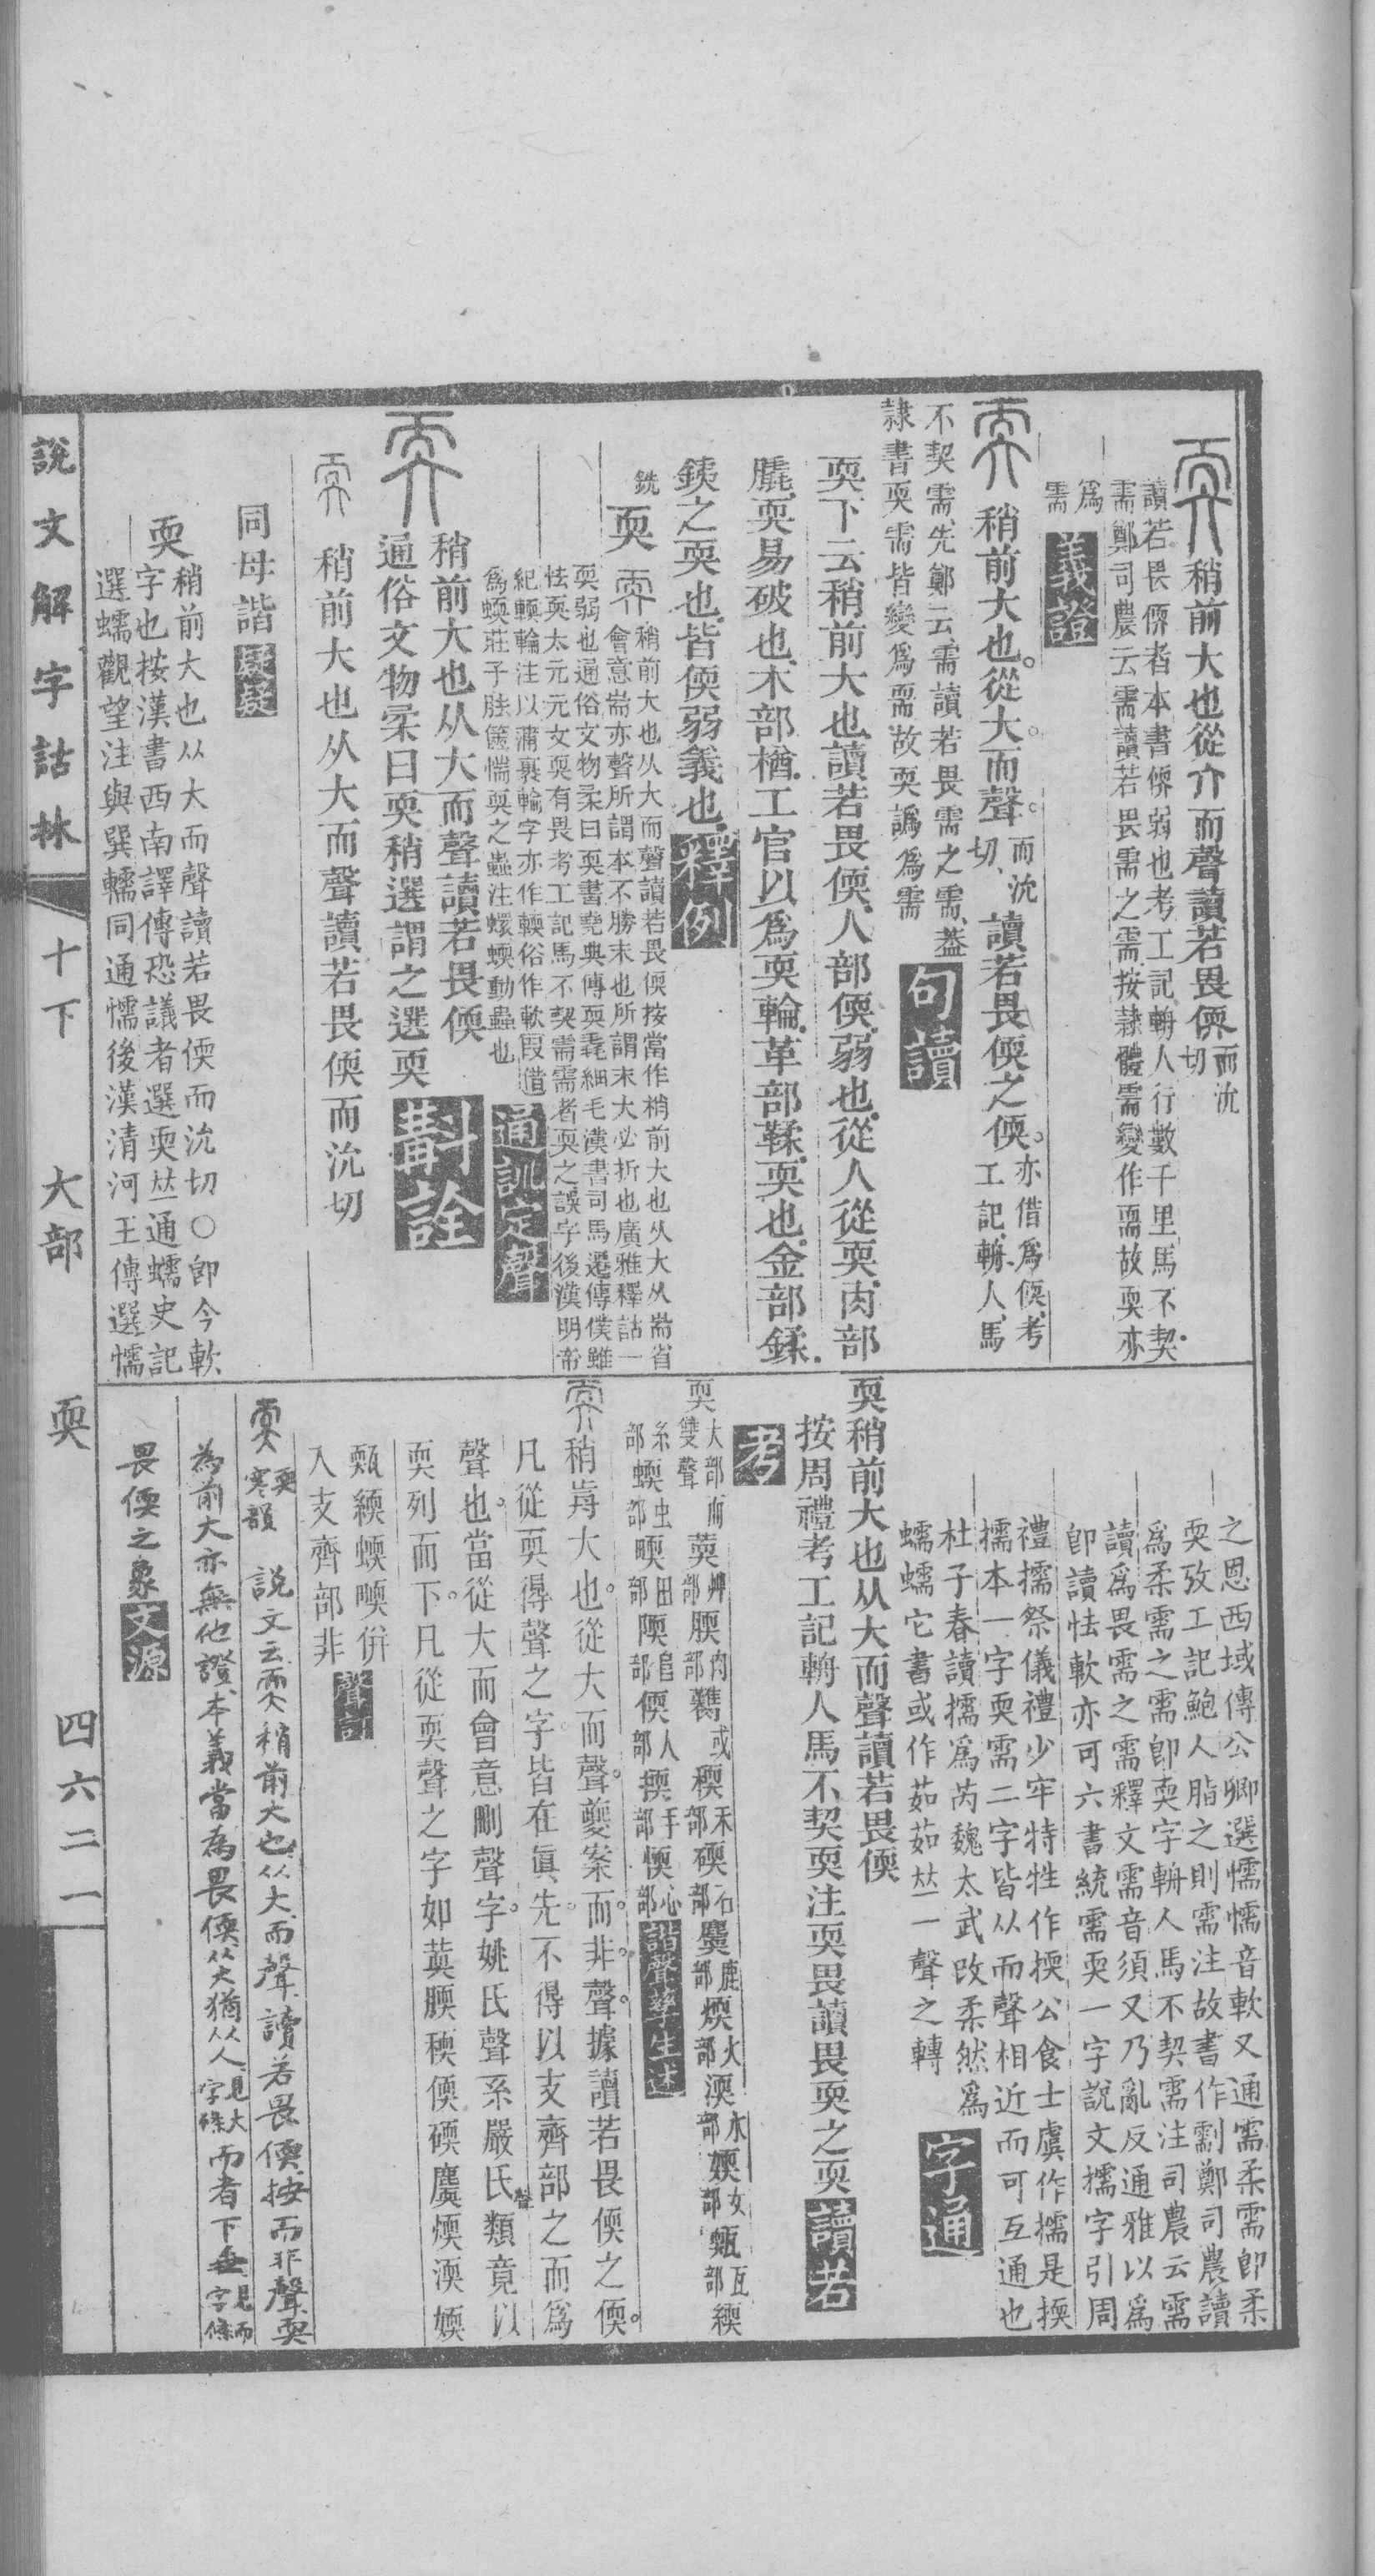 稍前大也從大而聲讀若畏偄而沇切
讀若畏偄者本書偄弱也考工記輈人行數千里馬不契
需鄭司農云需讀若畏需之需按隸體需變作耎故耎亦
爲需
義證
稍前大也從大而聲而沇切讀若畏偄之偄亦借爲偄考工記輈人馬
不契需先鄭云需讀若畏需之需葢
隸書耎需皆變爲耎故耎譌爲需
句讀
耎下云稍前大也讀若畏偄人部偄弱也從人從耎肉部
膬耎易破也木部楢工官以爲耎輪革部鞣耎也金部鍒
鐵之耎也皆偄弱義也
釋例
銑
耎
稍前大也从大而聲讀若畏偄按當作梢前大也从大从耑省
會意耑亦聲所謂本不勝末也所謂末大必折也廣雅釋詁一
耎弱也通俗文物柔曰耎書堯典傳耎毳細毛漢書司馬遷傳僕雖
怯耎太元元女耎有畏考工記馬不契需需者耎之誤字後漢明帝
紀輭輪注以蒲裹輪字亦作輭俗作軟叚借
爲蝡莊子胠篋惴耎之蟲注螺蝡動蟲也
通訓定聲
稍前大也从大而聲讀若畏偄
通俗文物柔曰耎稍選謂之選耎
斠詮
稍前大也从大而聲讀若畏偄而沇切
同母諧
耎
稍前大也从大而聲讀若畏偄而沇切○卽今軟
字也按漢書西南譯傳恐議者選耎𠀤通蠕史記
選蠕觀望注與巽輭同通懦後漢清河王傳選懦
之恩西域傳公卿選懦懦音軟又通需柔需卽柔
耎攷工記鮑人脂之則需注故書作𠟺鄭司農讀
爲柔需之需卽耎字輈人馬不契需注司農云需
讀爲畏需之需釋文需音須又乃亂反通雅以爲
卽讀怯軟亦可六書統需耎一字說文擩字引周
禮擩祭儀禮少牢特牲作挭公食士虞作擩是挭
擩本一字耎需二字皆从而聲相近而可互通也
杜子春讀擩爲芮魏太武改柔然爲
蠕蠕它書或作茹茹𠀤一聲之轉
字通
耎稍前大也从大而聲讀若畏偄
按周禮考工記輈人馬不契耎注耎畏讀畏耎之耎
讀若
考
耎大部而雙聲
諧聲孳生述
稍歬大也從大而聲夔案而非聲據讀若畏偄之偄
凡從耎得聲之字皆在眞先不得以支齊部之而爲
聲也當從大而會意刪聲字姚氏聲系嚴氏聲類竟以
耎列而下凡從耎聲之字如萸腝稬偄碝麌煗渜媆
㼲緛蝡㬉併
入支齊部非
聲訂
耎耎寒韻 說文云耎稍前大也从大而聲讀若畏偄按而非聲耎
為前大亦無他證本義當為畏偄从大猶从人見大字條而者下垂見而字條
畏偄之象
文源
說文解字詁林 十下 大部 耎 四六二一